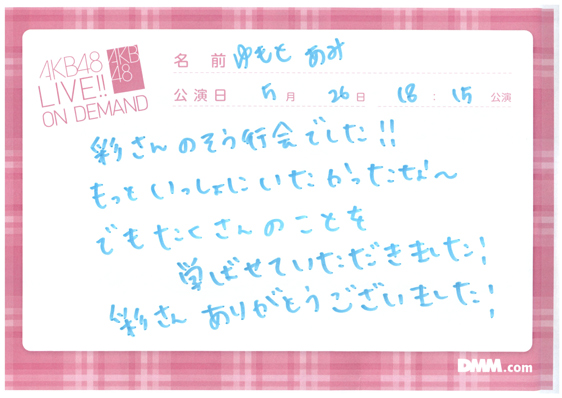 AKB48
LIVE!!
ON DEMAND
AKB
48
名 前 ゆもと あみ
公演日 5月 26日 18:15 公演
彩さんのそう行会でした!!
もっといっしょにいたかったなぁ〜
でもたくさんのことを
学ばせていただきました!
彩さんありがとうございました!
DMM.com